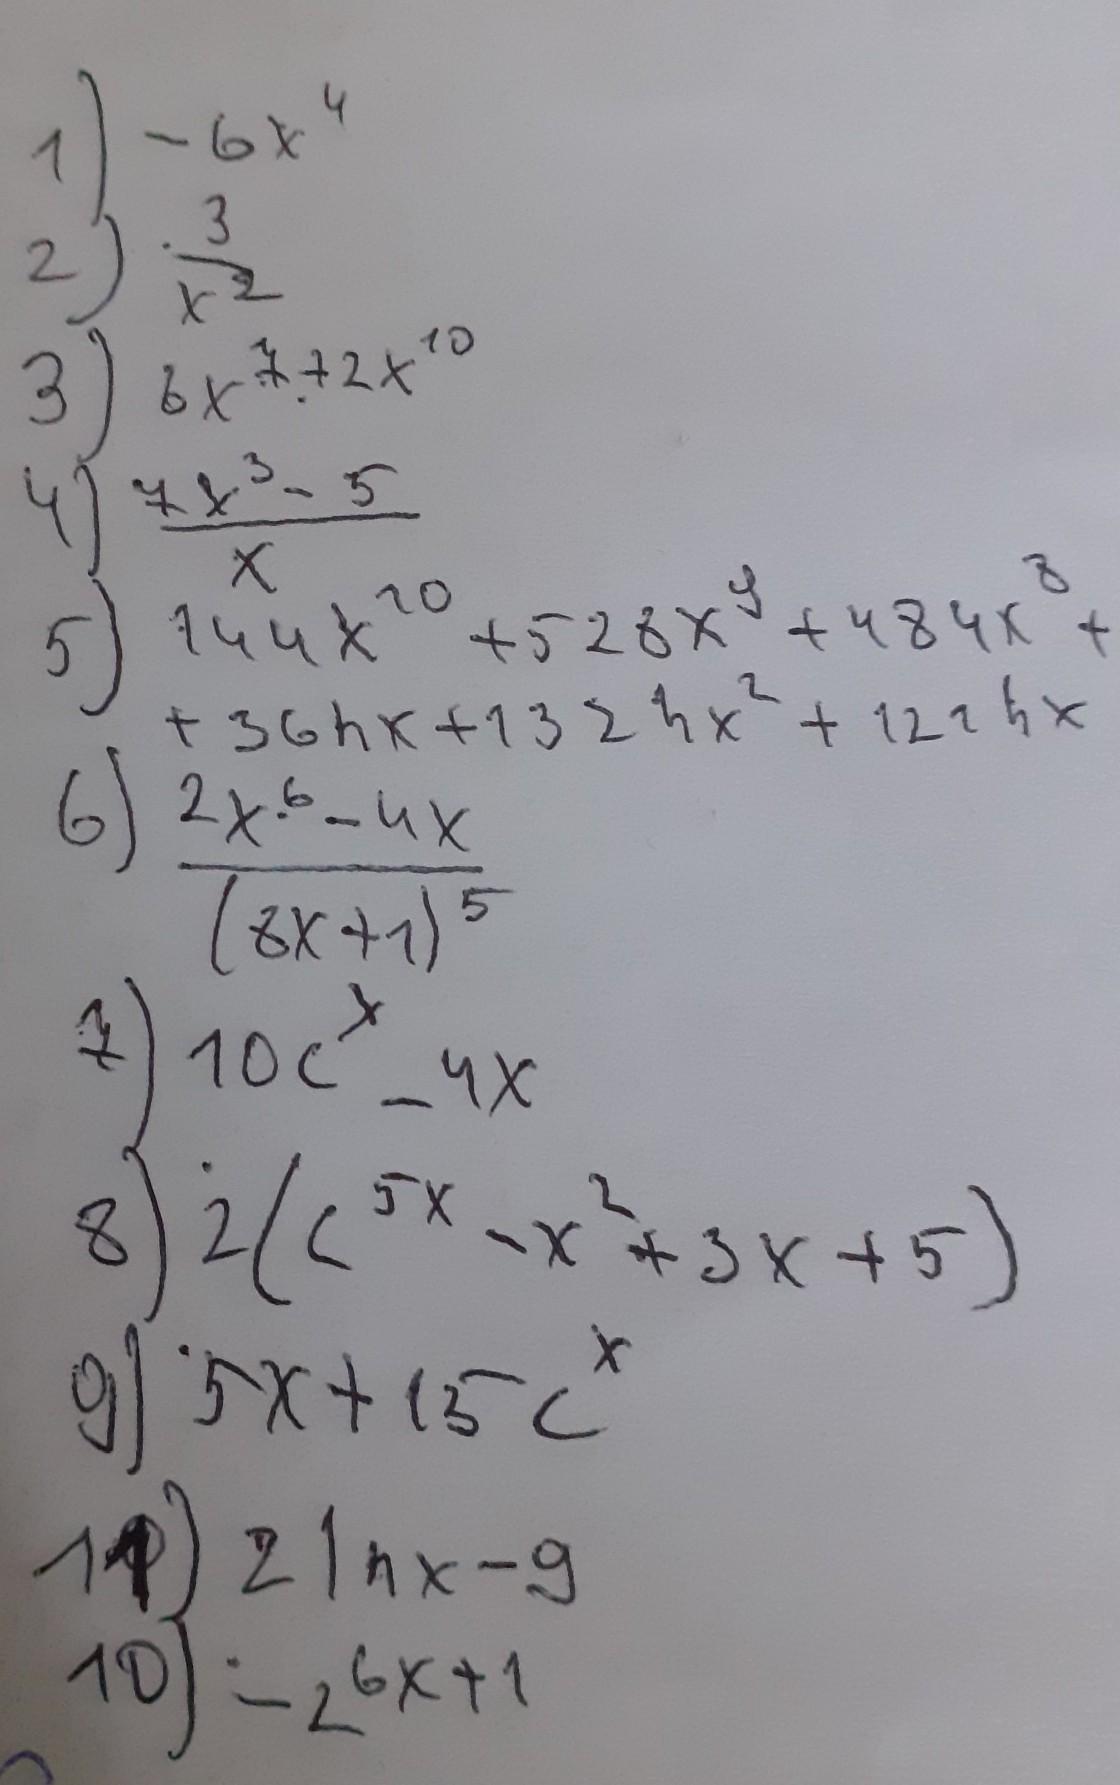 1) -6x⁴
2) 3/x²
3) 6x⁷+2x¹⁰
4) (7x³-5)/x
5) 144x¹⁰+528x⁹+484x⁸+
+36hx+132hx²+121hx
6) (2x⁶-4x)/(8x+1)⁵
7) 10c^x-4x
8) 2(c^5x-x²+3x+5)
9) 5x+15c^x
11) 2lnx-9
10) -2^6x+1